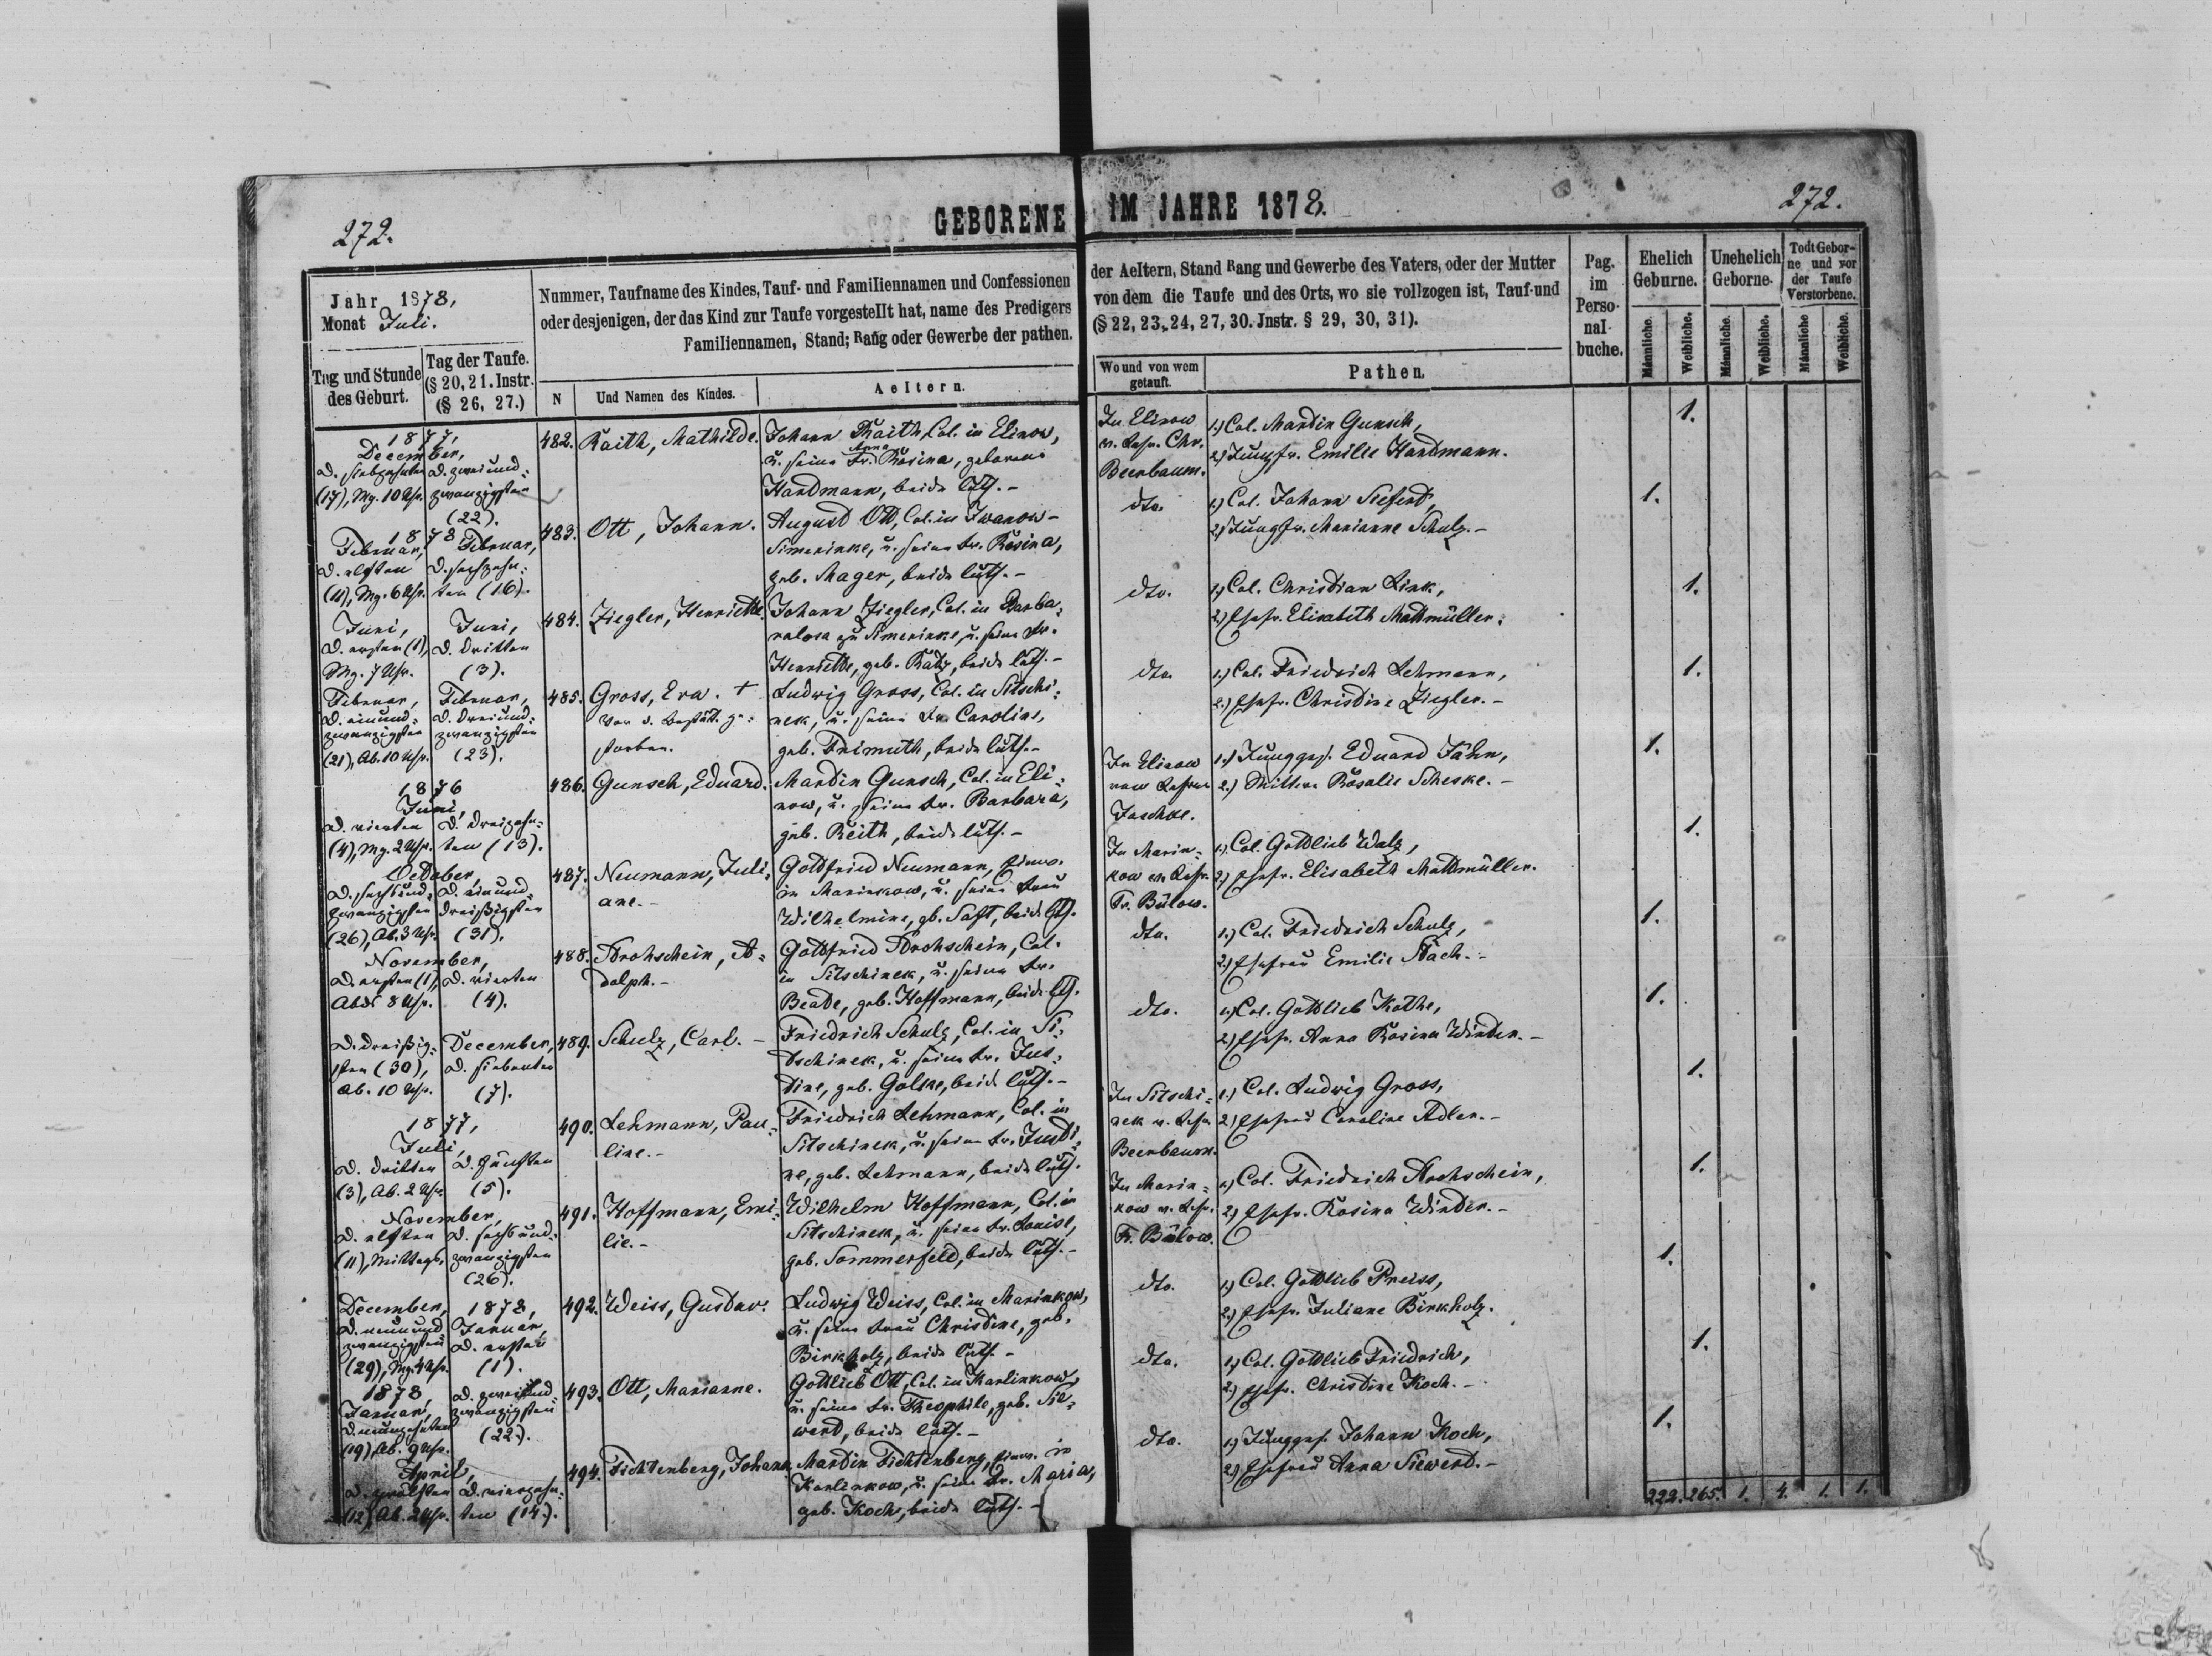 272.
GEBORENE IM JAHRE 1878.
272.
Jahr 1878,
Monat Juli.
Tag und Stunde
des Geburt.
Tag der Taufe.
(§ 20, 21. Instr.
(§ 26, 27.)
Nummer, Taufname des Kindes, Tauf- und Familiennamen und Confessionen
oder desjenigen, der das Kind zur Taufe vorgestellt hat, name des Predigers
Familiennamen, Stand; Rang oder Gewerbe der pathen.
N
Und Namen des Kindes.
Aeltern.
der Aeltern, Stand Rang und Gewerbe des Vaters, oder der Mutter
von dem die Taufe und des Orts, wo sie vollzogen ist, Tauf-und
(§ 22, 23, 24, 27, 30. Jnstr. § 29, 30, 31).
Wo und von wem
getauft.
Pathen.
Pag.
im
Perso-
nal-
buche.
Ehelich
Geburne.
Unehelich
Geborne.
Todt Gebor-
ne und vor
der Taufe
Verstorbene.
Männliche.
Weibliche.
Männliche.
Weibliche.
Männliche
Weibliche.
1877,
December,
d. siebzehnten
(17), Mg. 10 Uhr.
d. zwei und-
zwanzigsten
(22).
482. Raith, Mathilde.
Johann Raith, Col. in Elinow,
u. seine Fr. Anna Rosina, geborene
Handmann, beide luth.-
In Elinow
v. Lehr. Chr.
Beerbaum.
1.) Col. Martin Gunsch,
2.) Jungfr. Emilie Handmann.
1.
1878
Februar,
d. elften
(11), Mg. 6 Uhr.
Februar,
d. sechzehn-
ten (16).
483. Ott, Johann.
August Ott, Col. in Iwanow-
Simerinke, u. seine Fr. Rosina,
geb. Mager, beide luth.-
dto.
1.) Col. Johann Siefert,
2.) Jungfr. Marianne Schulz.-
1.
Juni,
d. ersten (1),
Mg. 7 Uhr.
Juni,
d. dritten
(3).
484. Ziegler, Henriette.
Johann Ziegler, Col. in Barba-
ralosa zu Simerinke, u. seine Fr.
Henriette, geb. Katz, beide luth.-
dto.
1.) Col. Christian Link,
2.) Ehefr. Elisabeth Mattmüller.
1.
Februar,
d. ein und-
zwanzigsten
(21), Ab. 10 Uhr.
Februar,
d. drei und-
zwanzigsten
(23).
485. Gross, Eva. †
Vor d. Bestät. ge-
storben.
Ludwig Gross, Col. in Sitschi-
nek, u. seine Fr. Caroline,
geb. Freimuth, beide luth.-
dto.
1.) Col. Friedrich Lehmann,
2.) Ehefr. Christine Ziegler.-
1.
1876
Juni,
d. vierten
(4), Mg. 2 Uhr.
d. dreizehn-
ten (13).
486. Gunsch, Eduard.
Martin Gunsch, Col. in Eli-
now, u. seine Fr. Barbara,
geb. Reith, beide luth.-
In Elinow
vom Lehrer
Jaschke.
1.) Junggs. Eduard Jahn,
2.) Wittwe Rosalie Scheske.-
1.
October,
d. sechs und-
zwanzigsten
(26), Ab. 3 Uhr.
d. ein und-
dreißigsten
(31).
487. Neumann, Juli-
ane.-
Gottfried Neumann, Einw.
in Marinkow, u. seine Frau
Wilhelmine, gb. Saft, beide lth.
In Marin-
kow v. Lehr.
Fr. Bülow.
1.) Col. Gottlieb Walz,
2.) Ehefr. Elisabeth Mattmüller.
1.
November,
d. ersten (1),
Abds 8 Uhr.
d. vierten
(4).
488. Strohschein, A-
dolph.-
Gottfried Strohschein, Col.
in Sitschinek, u. seine Fr.
Beate, geb. Hoffmann, beide lth.
dto.
1.) Col. Friedrich Schulz,
2.) Ehefrau Emilie Stach.-
1.
d. dreißig-
sten (30),
Ab. 10 Uhr.
December,
d. siebenten
(7).
489. Schulz, Carl.-
Friedrich Schulz, Col. in Si-
tschinek, u. seine Fr. Jus-
tine, geb. Golke, beide luth.-
dto.
1.) Col. Gottlieb Kothe,
2.) Ehefr. Anna Rosina Winter.-
1.
1877,
Juli,
d. dritten
(3), Ab. 2 Uhr.
d. fünften
(5).
490. Lehmann, Pau-
line.-
Friedrich Lehmann, Col. in
Sitschinek, u. seine Fr. Justi-
ne, geb. Lehmann, beide luth.
In Sitschi-
nek v. Lehr.
Beerbaum.
1.) Col. Ludwig Gross,
2.) Ehefrau Caroline Adler.-
1.
November,
d. elften
(11), Mittags.
d. sechs und-
zwanzigsten
(26).
491. Hoffmann, Emi-
lie.-
Wilhelm Hoffmann, Col. in
Sitschinek, u. seine Fr. Louise,
geb. Sommerfeld, beide luth.-
In Marin-
kow v. Lehr.
Fr. Bülow.
1.) Col. Friedrich Strohschein,
2.) Ehefr. Rosina Winter.-
1.
December,
d. neun und
zwanzigsten
(29), Mg. 4 Uhr.
1878,
Januar,
d. ersten
(1).
492. Weiss, Gustav.
Ludwig Weiss, Col. in Marinkow,
u. seine Frau Christine, geb.
Birkholz, beide luth.-
dto.
1.) Col. Gottlieb Preiss,
2.) Ehefr. Juliane Birkholz.
1.
1878
Januar,
d. neunzehnten
(19), Ab. 9 Uhr.
d. zwei und-
zwanzigsten
(22).
493. Ott, Marianne.
Gottlieb Ott, Col. in Marlinkow,
u. seine Fr. Theophile, geb. Sie-
wert, beide luth.-
dto.
1.) Col. Gottlieb Friedrich,
2.) Ehefr. Christine Koch.-
1.
April,
d. zwölften
(12), Ab. 2 Uhr.
d. vierzehn-
ten (14).
494. Fichtenberg, Johann.
Martin Fichtenberg, Einw. in
Karlinkow, u. seine Fr. Maria,
geb. Koch, beide luth.-
dto.
1.) Junggs. Johann Koch,
2.) Ehefrau Anna Siewert.-
1.
222. 265. 1. 4. 1. 1.